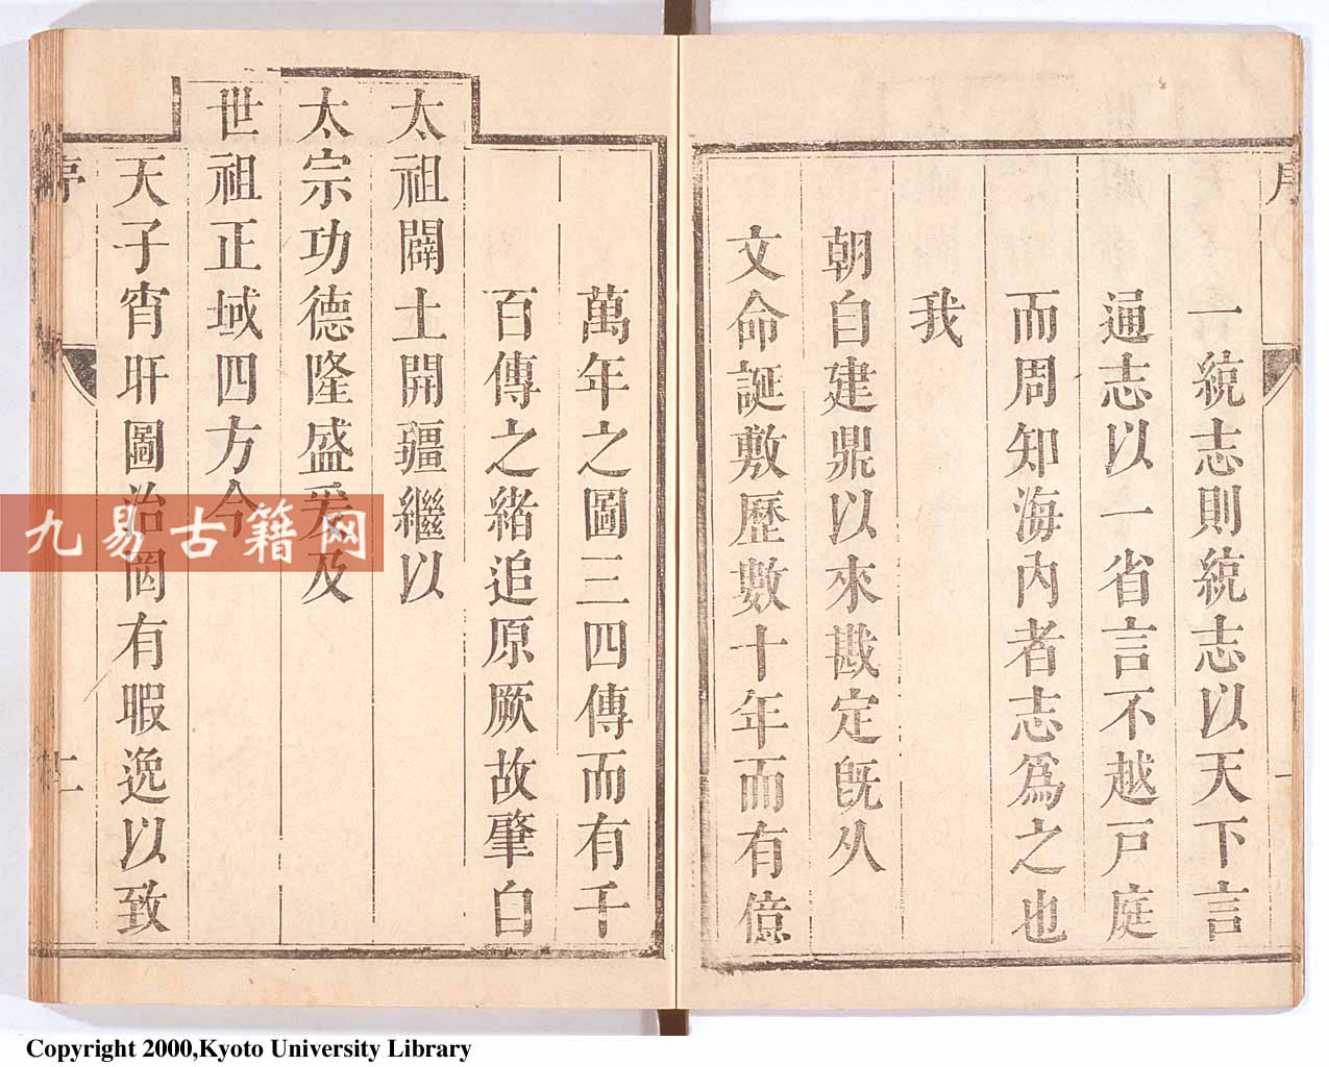 一統志則統志以天下言
通志以一省言不越戸庭
而周知海内者志爲之也
我
朝自建鼎以來戡定旣从
文命誕敷歷數十年而有億
萬年之圖三四傳而有千
百傳之緒追原厥故肇自
太祖闢土開疆繼以
太宗功德隆盛爰及
世祖正域四方今
天子宵旰圖治罔有暇逸以致
序
二
九易古籍网
Copyright 2000,Kyoto University Library